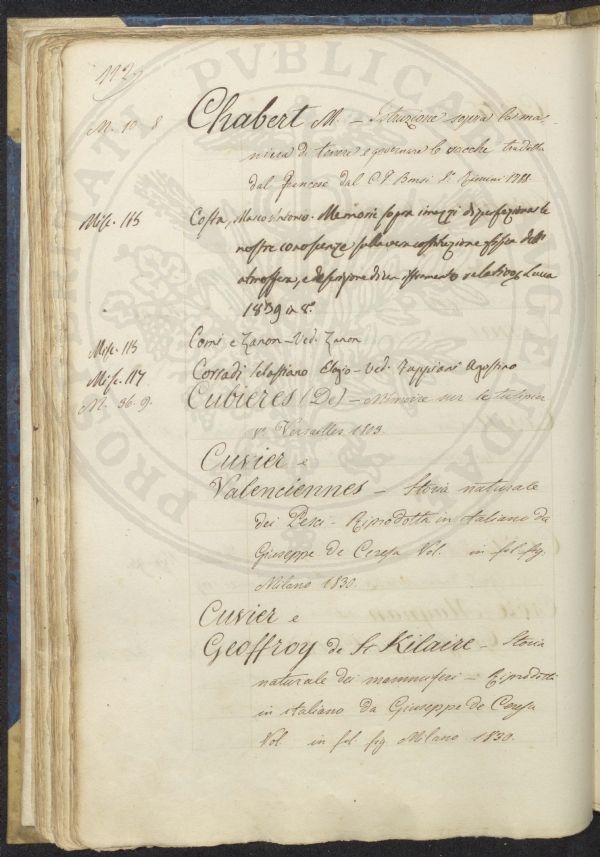 192
M. 10 8 Chabert M. - Istruzione sopra la ma-
niera di tenere e governare le vacche tradotta
dal francese dal C. P. Bonsi 8.° Rimini
Misc. 115 Costa, Marco Antonio. Memoria sopra i mezzi di perfezionar le
nostre conoscenze sulla vera costituzione fisica dell'
atmosfera, e descrizione di un istrumento relativo. Lucca
1839 in 8.°
Misc. 115 Comi e Zanon - Ved. Zanon
Misc. 117 Corradi Sebastiano Elogio - Ved. Cappiani Agostino
M. 36. 9. Cubieres (De) - Mémoire sur le tulipier
8.° Versailles 1803.
Cuvier e
Valenciennes - Storia naturale
dei Pesci - Riprodotta in italiano da
Giuseppe de Ceresa Vol. in fol. fig.
Milano 1830.
Cuvier e
Geoffroy de St Hilaire - Storia
naturale dei mammiferi - Riprodotti
in italiano da Giuseppe de Ceresa
Vol. in fol. fig. Milano 1830.
PROSPERITATI PVBLICAE AVGENDAE